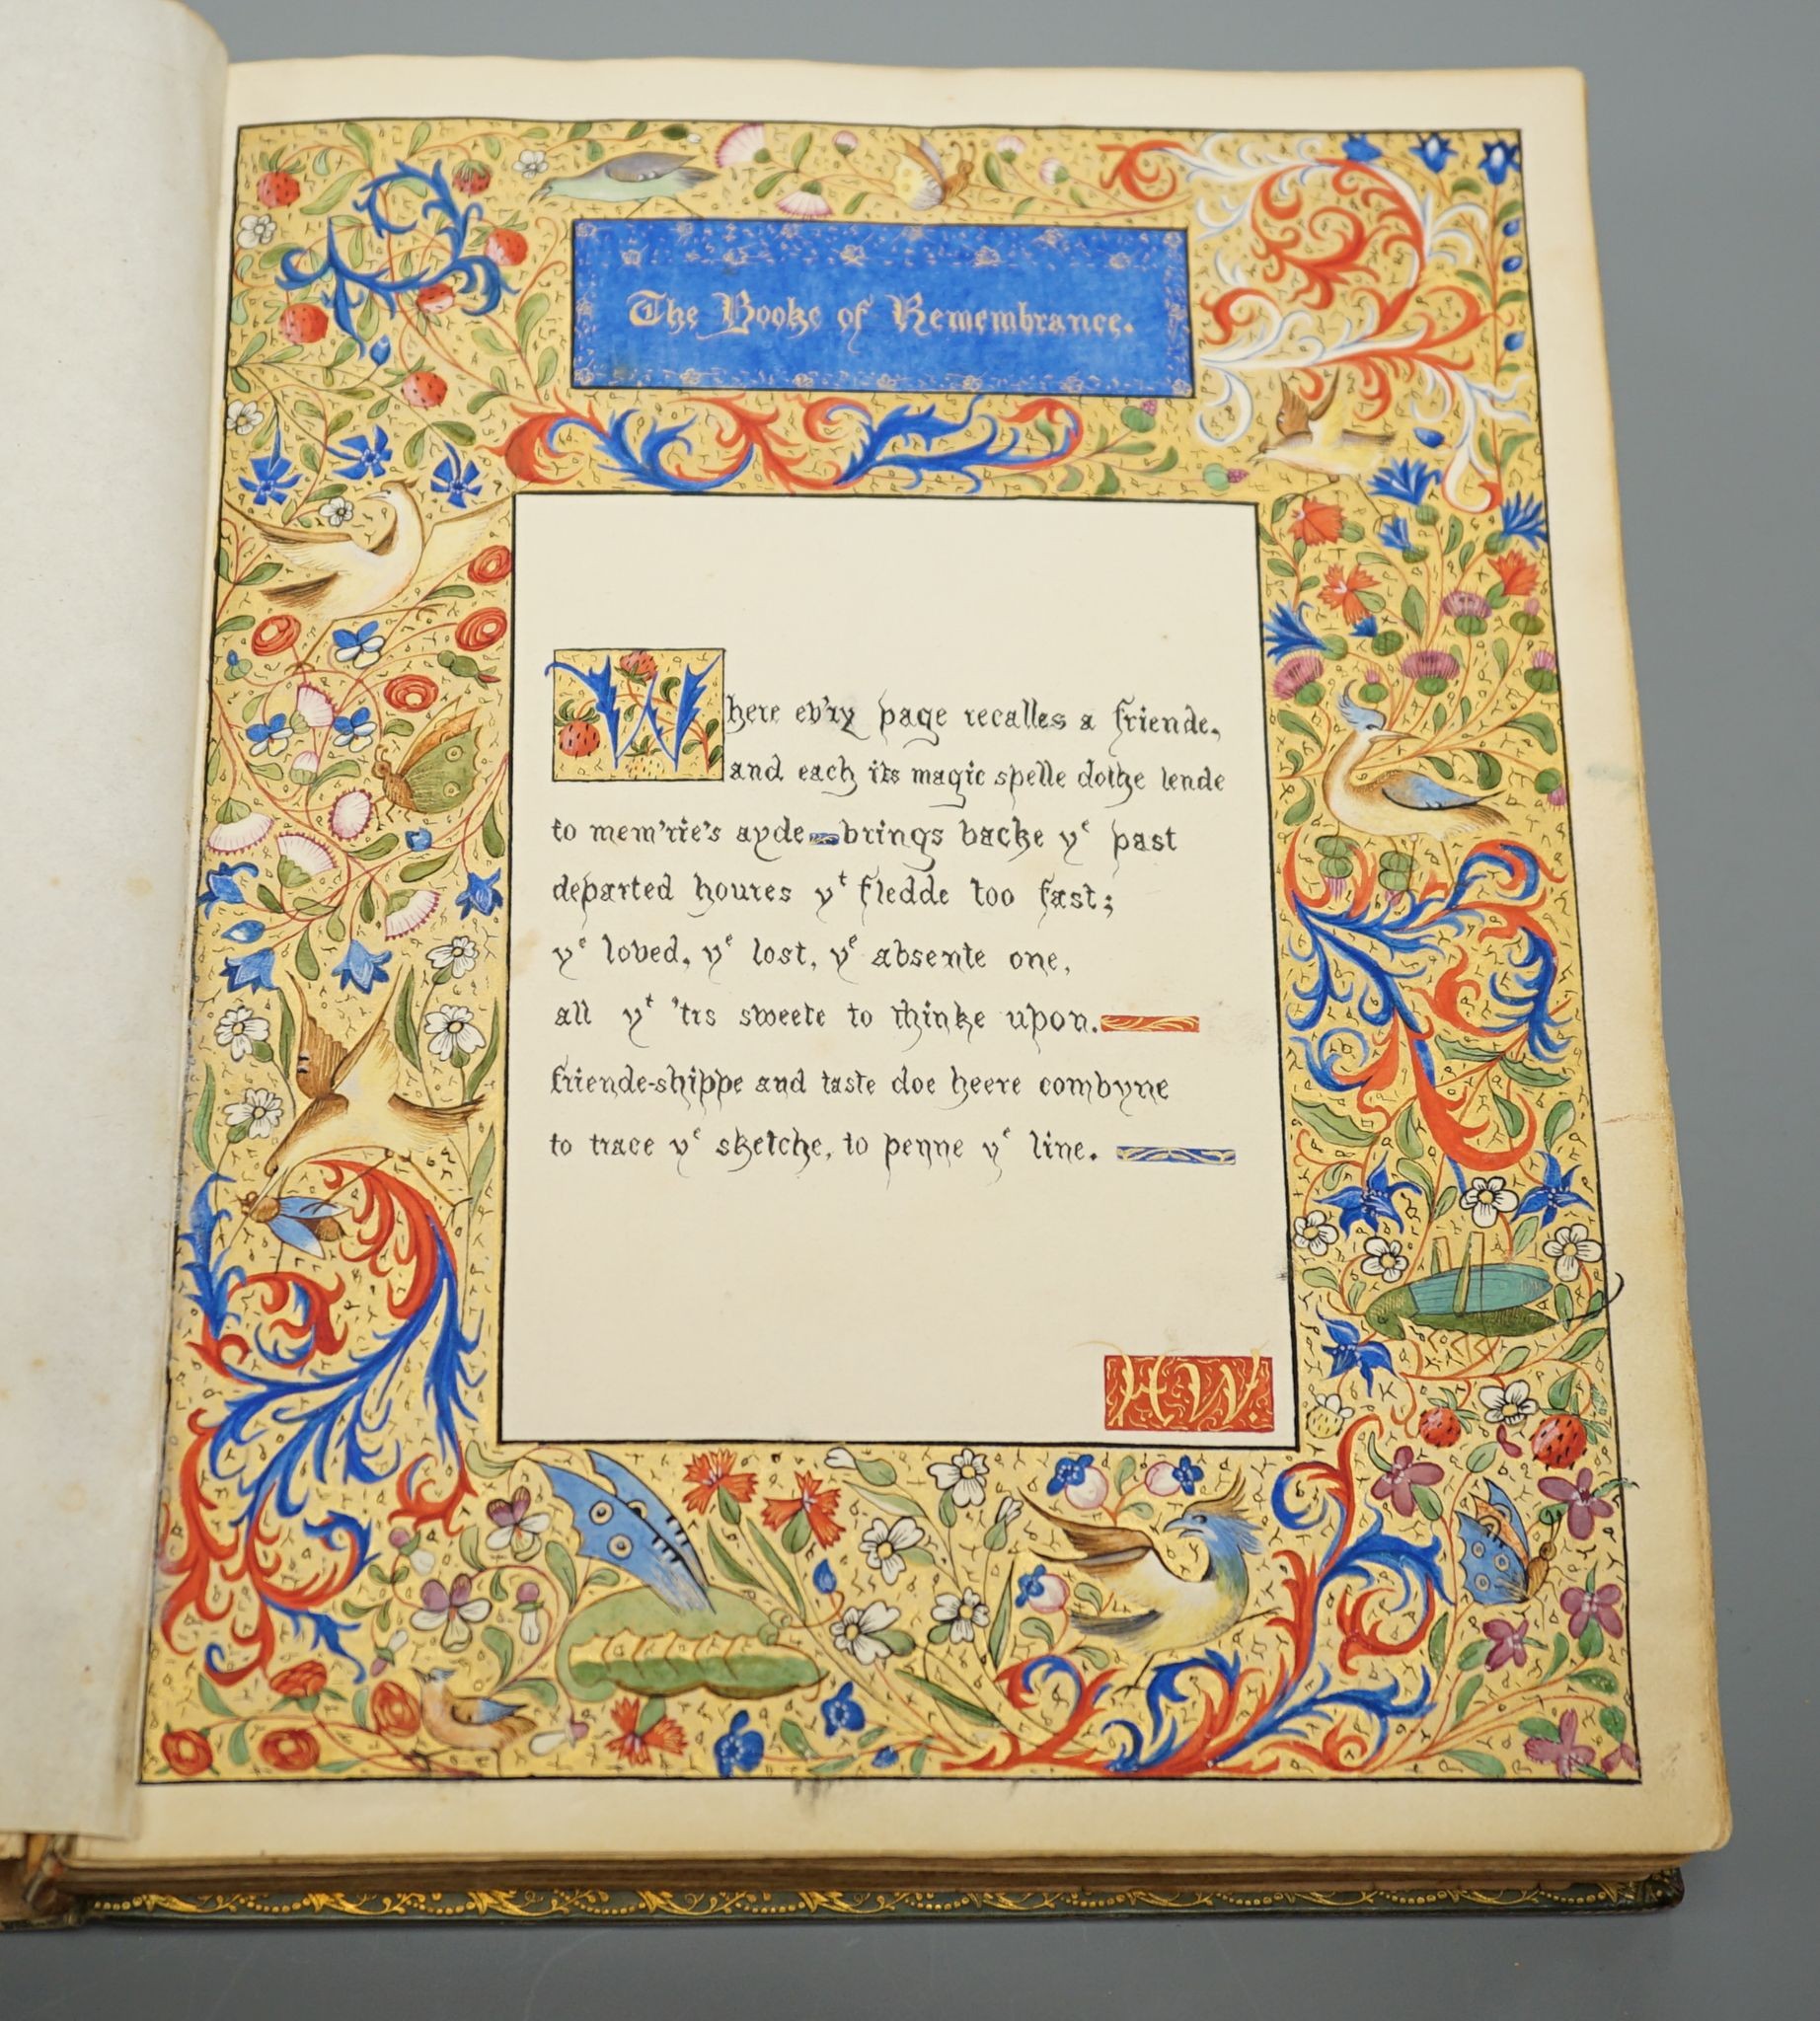 The Booke of Remembrance.
Where ev'ry page recalles a friende,
and each its magic spelle dothe lende
to mem'rie's ayde—brings backe yᵉ past
departed houres yᵗ fledde too fast;
yᵉ loved, yᵉ lost, yᵉ absente one,
all yᵗ 'tis sweete to thinke upon.
friende-shippe and taste doe heere combyne
to trace yᵉ sketche, to penne yᵉ line.
H.W.